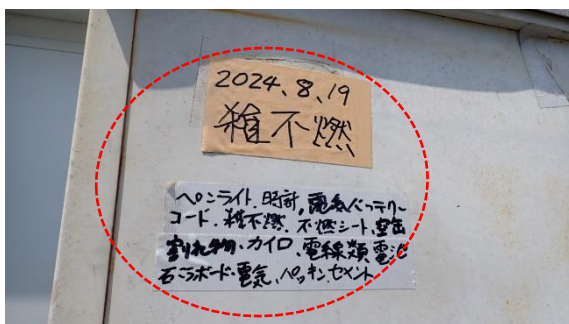 2024.8.19
雑不燃
ペンライト.時計,電気バッテリー
コード.雑不燃.不燃シート.空缶
割れ物.カイロ.電線類.電池
石こうボード.電気.パッキン.セメント